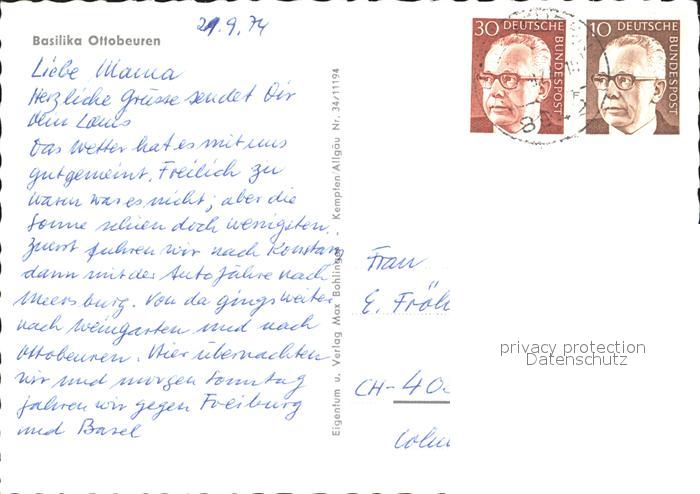 21.9.74
Basilika Ottobeuren
Liebe Mama
Herzliche Grüsse sendet Dir
Dein
Das Wetter hat es mit uns
gut gemeint. Freilich zu
warm war es nicht; aber die
Sonne schien doch wenigsten.
Zuerst fuhren wir nach Konstanz
dann mit der Autofähre nach
Meersburg. Von da gings weiter
nach Weingarten und nach
Ottobeuren. Hier übernachten
wir und morgen Sonntag
fahren wir gegen Freiburg
und Basel
Eigentum u. Verlag Max Bohlinger - Kempten/Allgäu Nr. 34/11194
30 DEUTSCHE BUNDESPOST
10 DEUTSCHE BUNDESPOST
Frau
E. Fröh
CH-40
privacy protection
Datenschutz